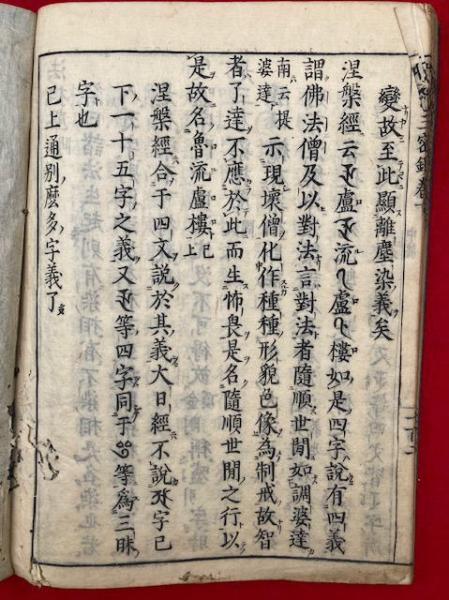 變故至此顯離塵染義矣
涅槃經云𑖨𑖴盧𑖨𑖵流𑖩𑖴盧𑖩𑖵樓如是四字說有四義
謂佛法僧及以對法言對法者隨順世間如調婆達
南云提婆達示現壞僧化作種種形貌色像為制戒故智
者了達不應於此而生怖畏是名隨順世間之行以
是故名魯流盧樓已上
涅槃經合于四文說於其義大日經不說字已
下一十五字之義又等四字同于等為三昧
字也
已上通別麼多字義了